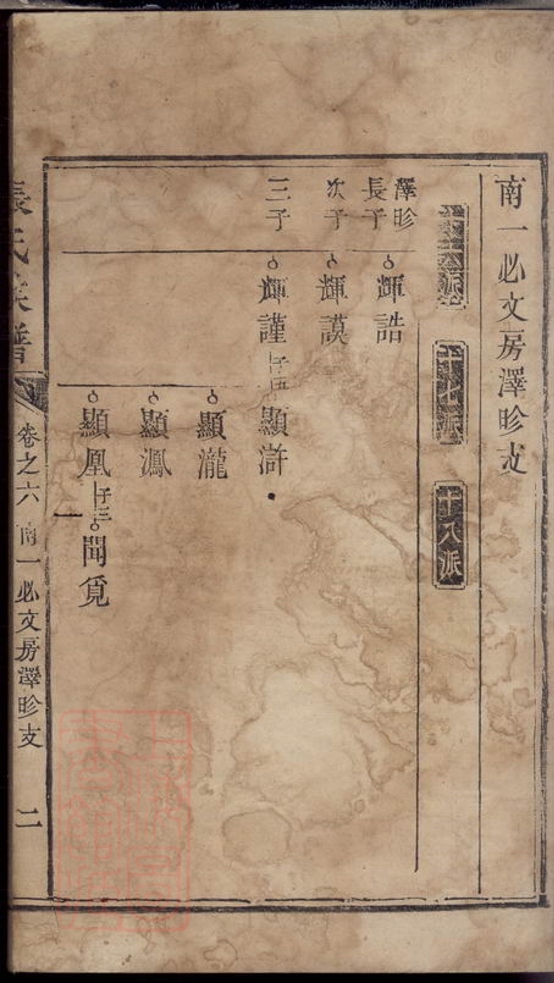 南一必文房澤昣支
十六派
十七派
十八派
澤昣
長子
輝誥
次子
輝謨
三子
輝謹
子四
顯滸
顯瀧
顯鳳
子三
聞覓
張氏族譜
卷之六
南一必文房澤昣支
二